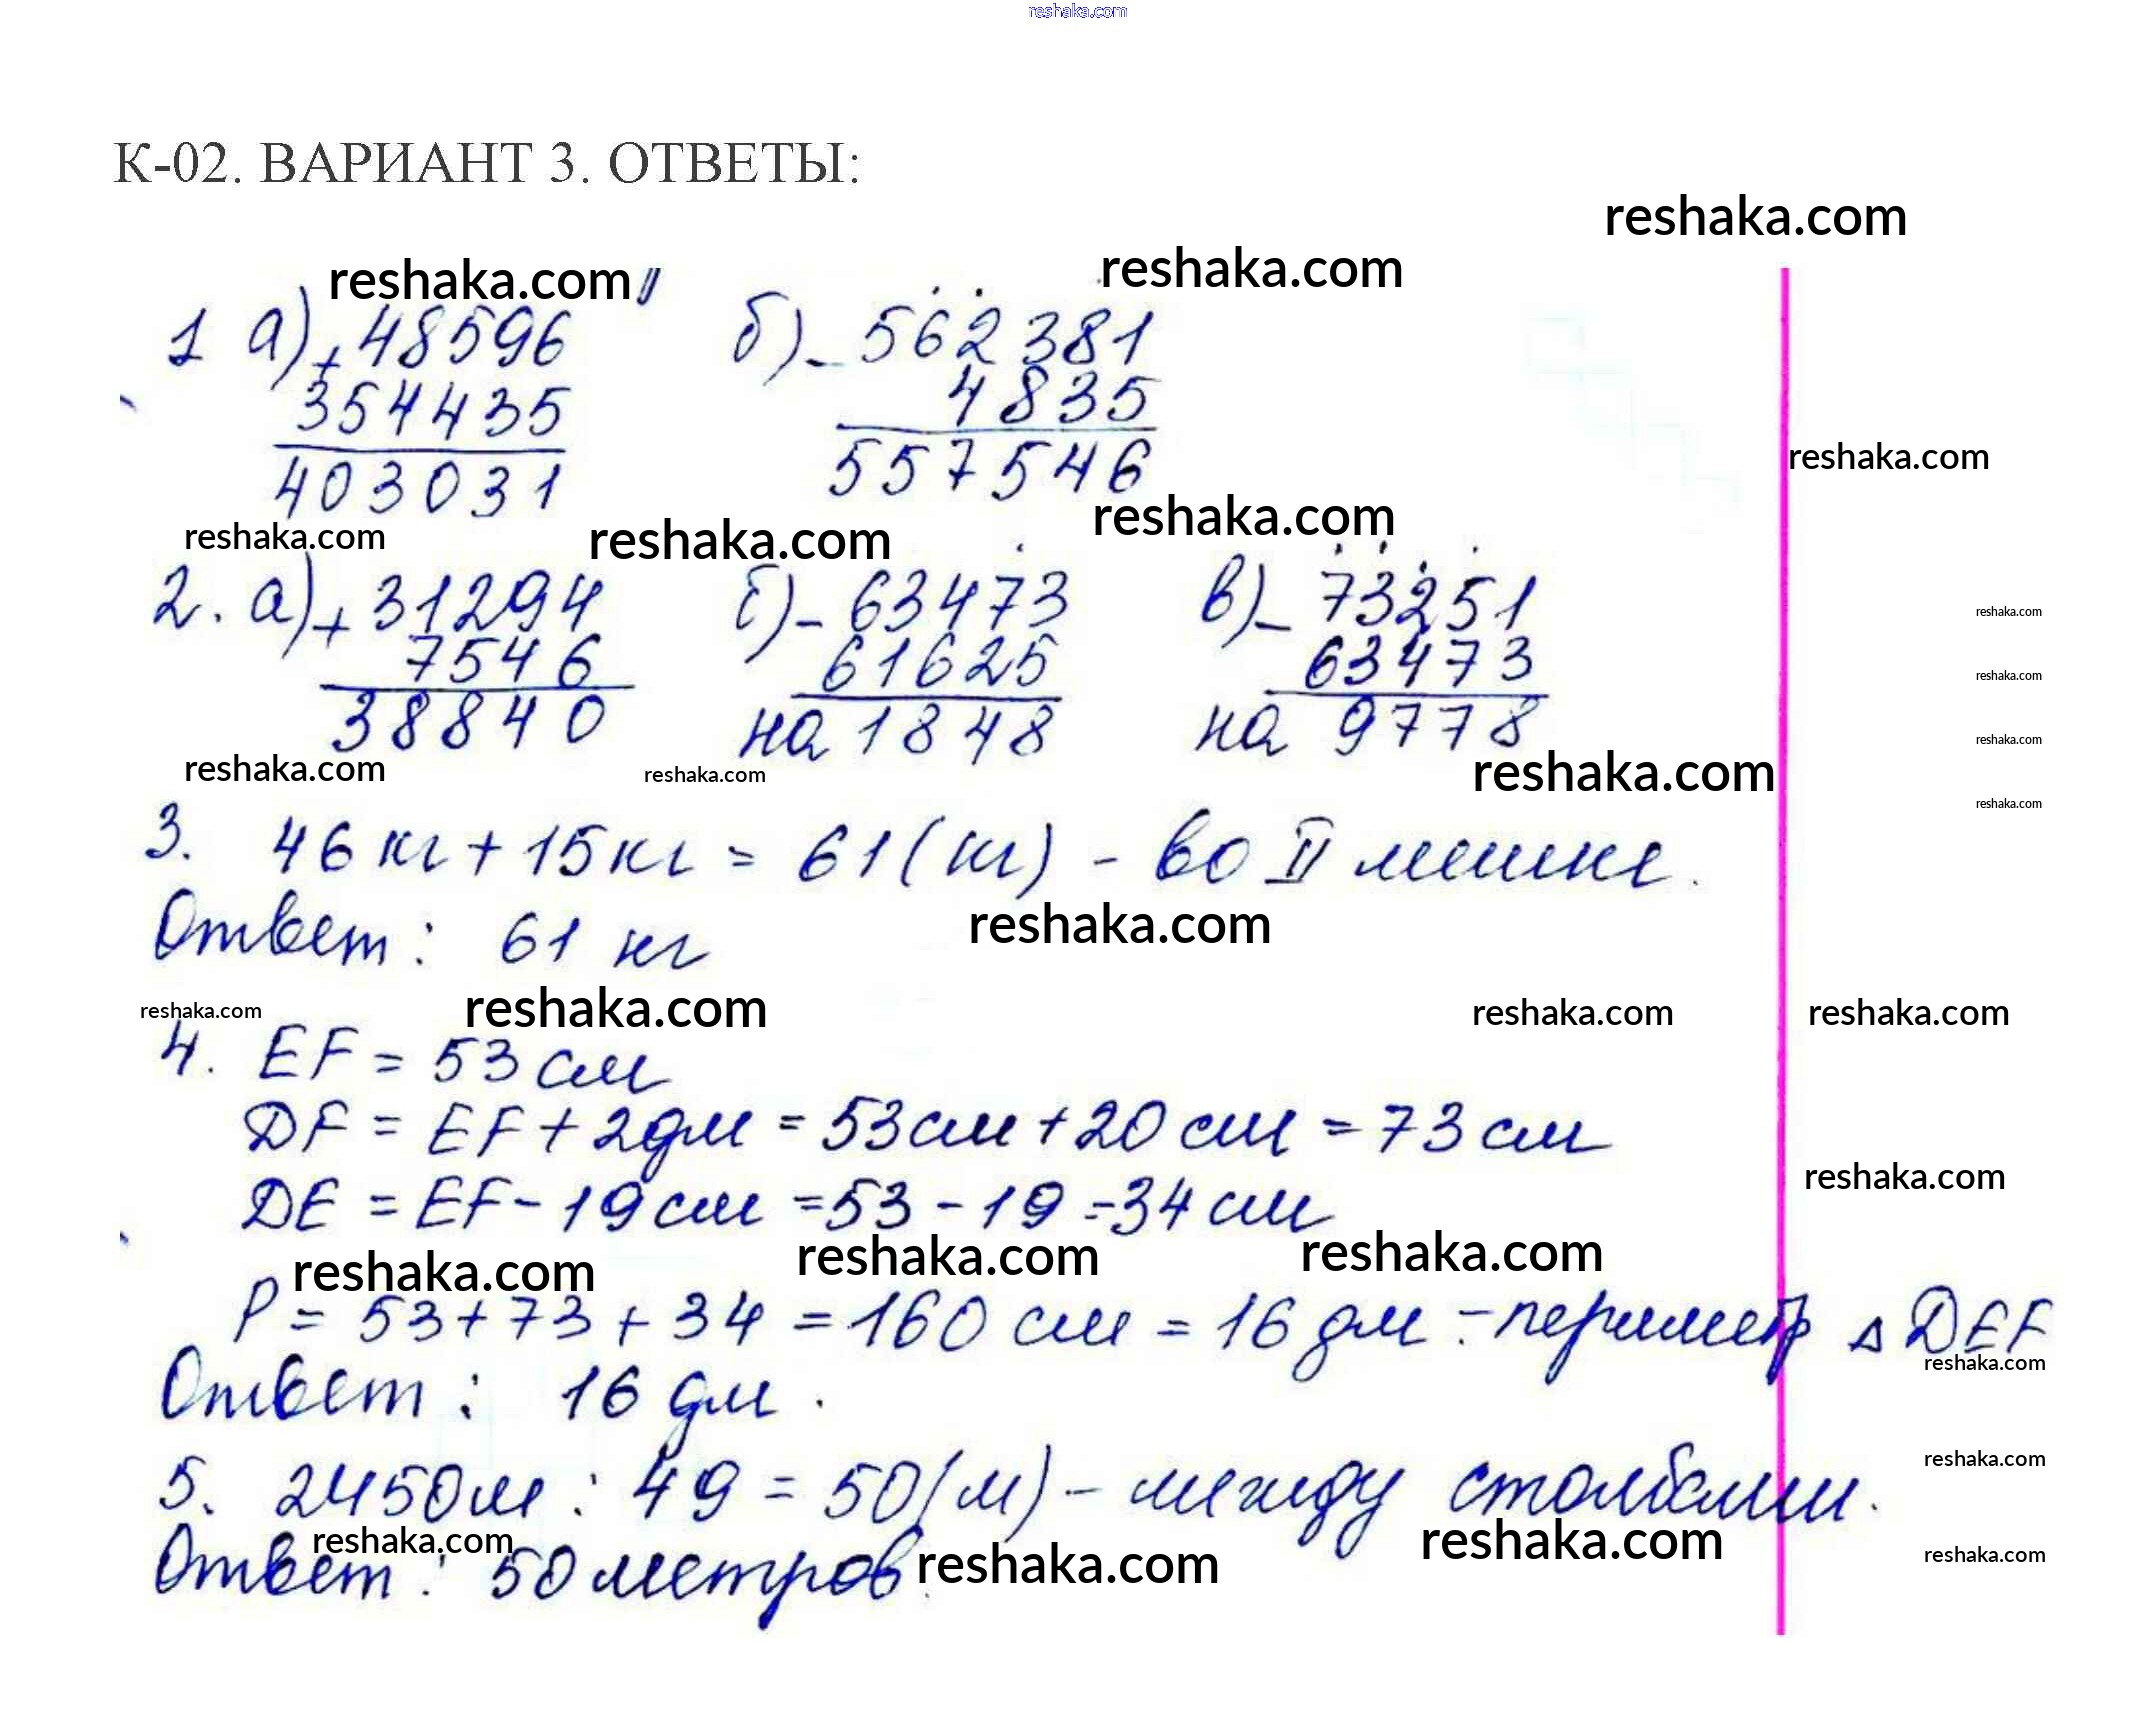 reshaka.com
К-02. ВАРИАНТ 3. ОТВЕТЫ:
reshaka.com
reshaka.com reshaka.com
1 а) + 48596 б) - 562381
354435 4835
403031 557546
reshaka.com
reshaka.com reshaka.com reshaka.com
2. а) + 31294 б) - 63473 в) - 73251
reshaka.com
7546 61625 63473
reshaka.com
38840 на 1848 на 9778
reshaka.com
reshaka.com reshaka.com reshaka.com
reshaka.com
3. 46 кг + 15 кг = 61 (кг) - во II мешке.
Ответ: 61 кг reshaka.com
reshaka.com reshaka.com reshaka.com reshaka.com
4. EF = 53 см
DF = EF + 2 дм = 53 см + 20 см = 73 см
reshaka.com
DE = EF - 19 см = 53 - 19 = 34 см
reshaka.com reshaka.com reshaka.com
P = 53 + 73 + 34 = 160 см = 16 дм - периметр Δ DEF
reshaka.com
Ответ: 16 дм.
reshaka.com
5. 2450 м : 49 = 50 (м) - между столбами.
reshaka.com reshaka.com reshaka.com reshaka.com
Ответ: 50 метров.